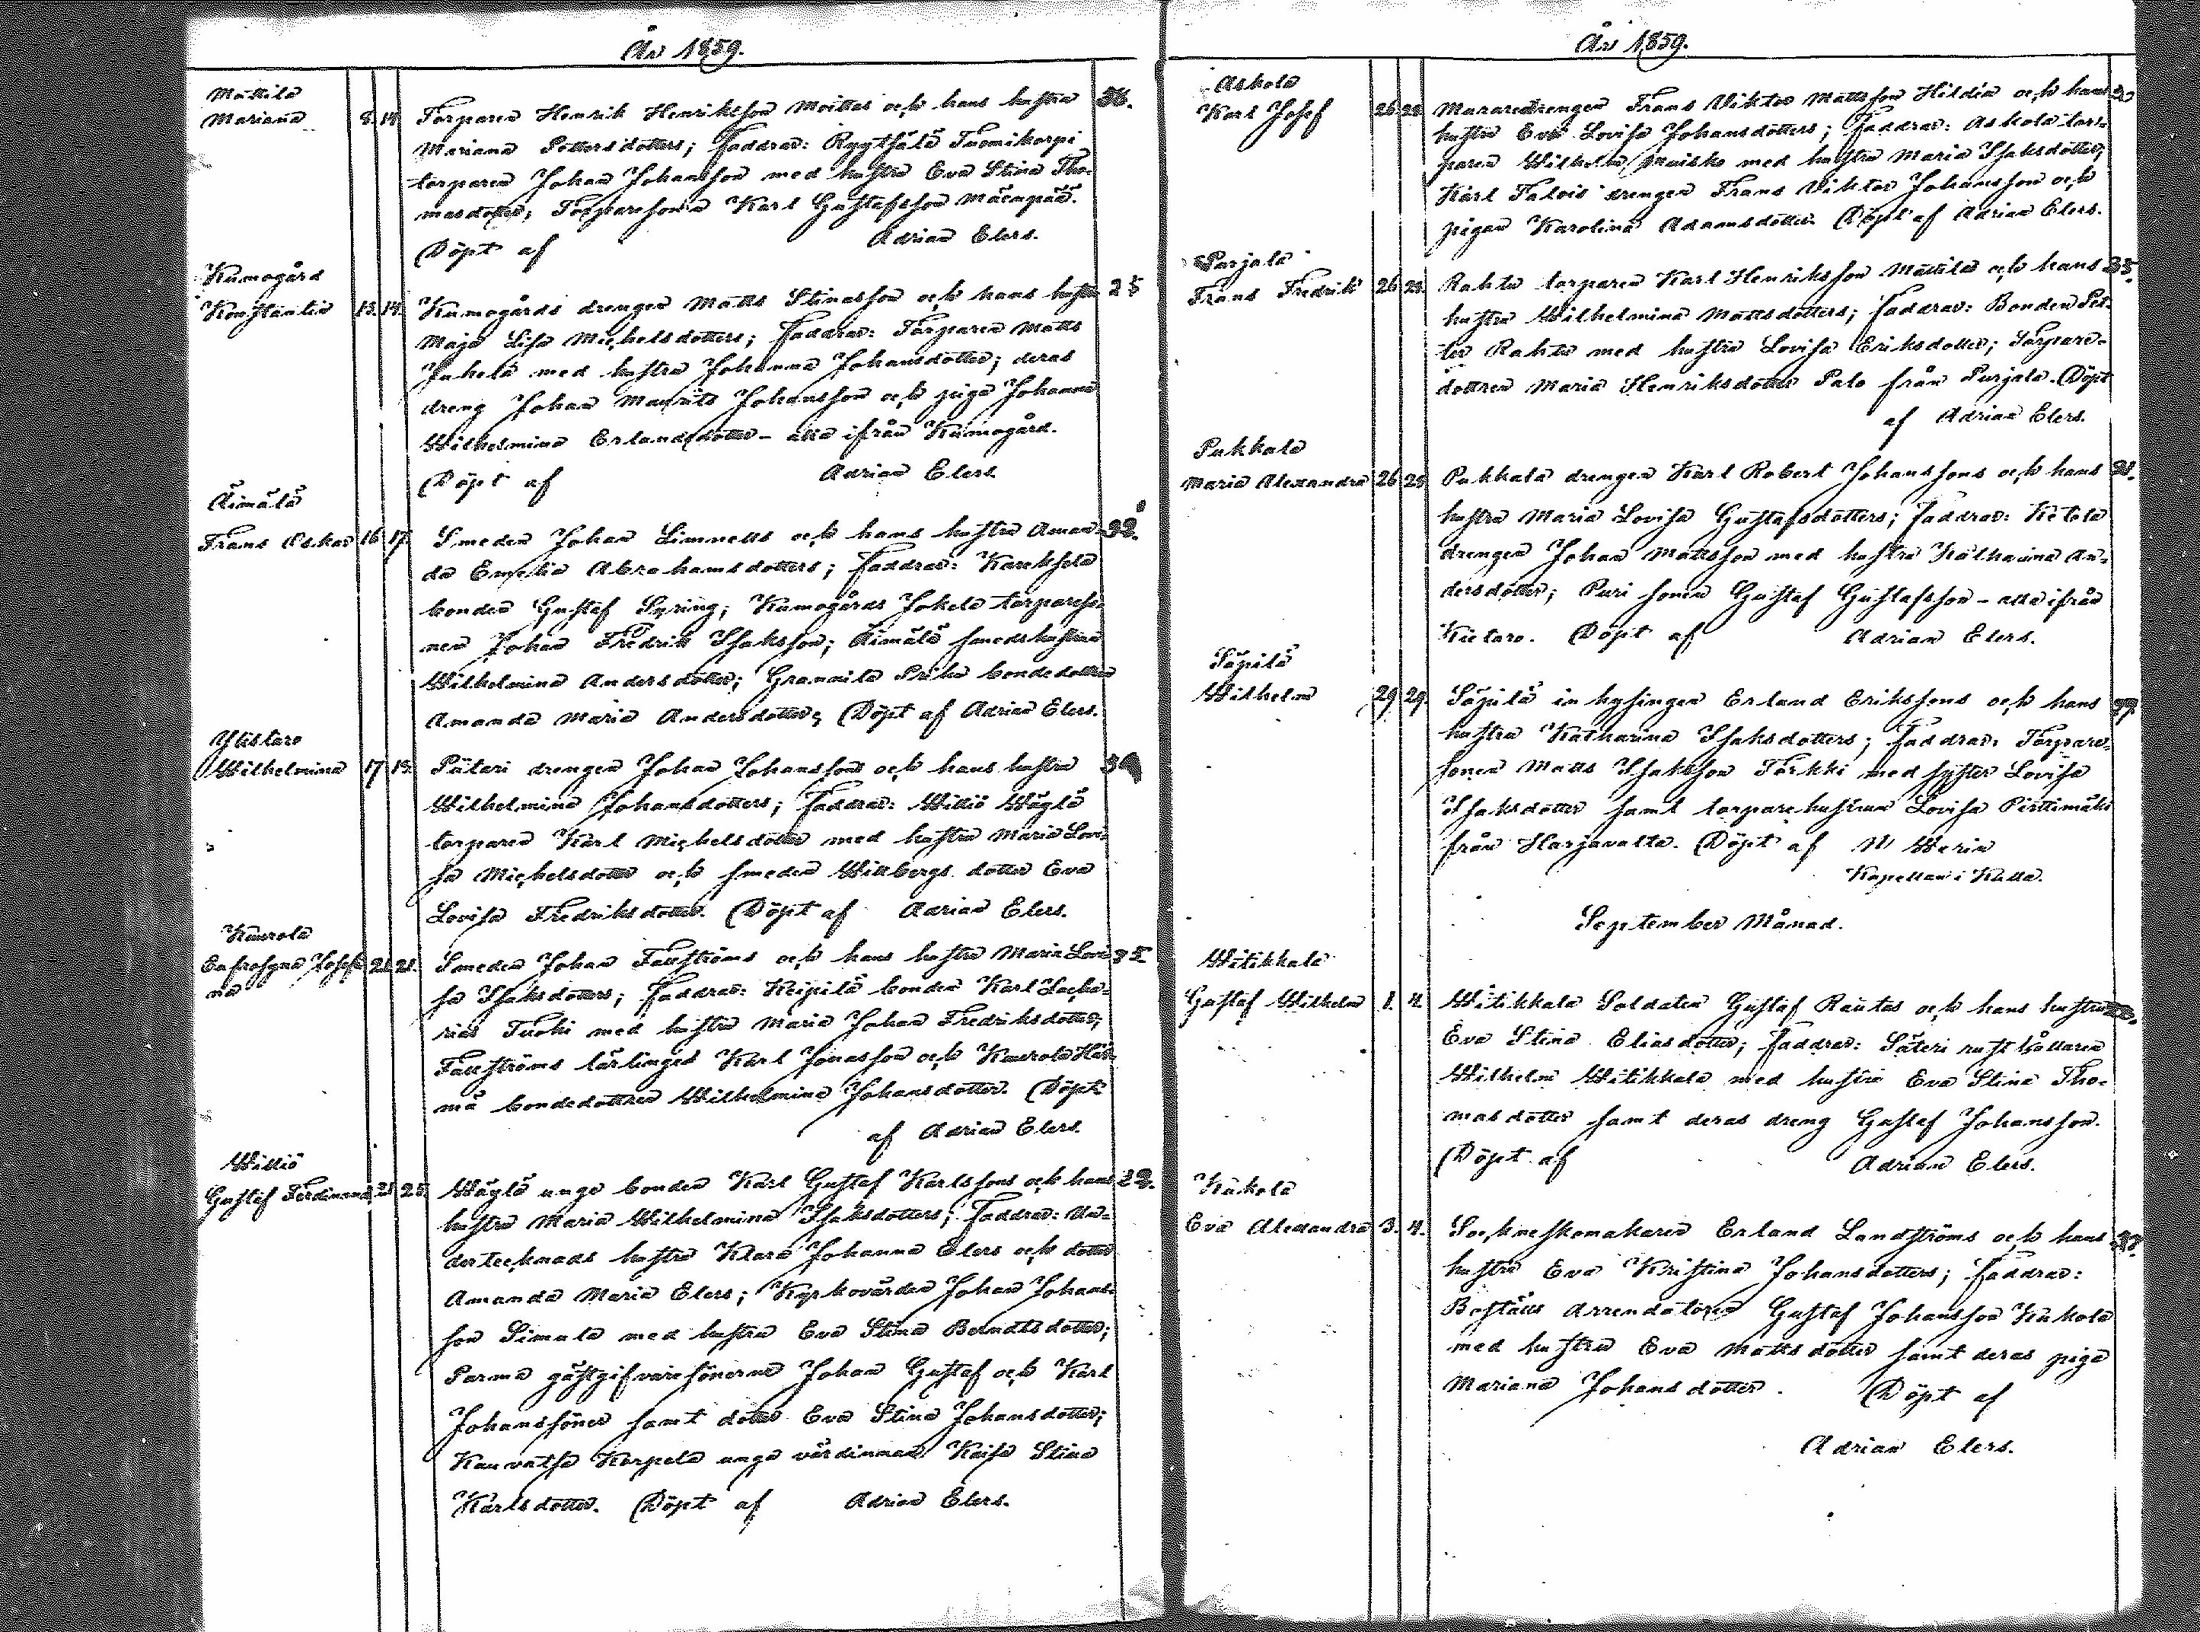 År 1859.
Mattila
Mariana 8. 14. Torparen Henrik Henriksson Moittas och hans hustru 36.
Mariana Pettersdotters; Faddrar: Ryytsälä Tuomikorpi
torparen Johan Johansson med hustru Eva Stina Tho-
masdotter; Torparesonen Karl Gustafsson Mäenpää.
Döpt af Adrian Elers.
Kumogård
Konstantin 13. 14. Kumogårds drengen Matts Stinasson och hans hustru 25
Maja Lisa Michelsdotters; Faddrar: Torparen Matts
Juhela med hustru Johanna Johansdotter; deras
dreng Johan Maurits Johansson och piga Johanna
Wilhelmina Erlandsdotter – alla ifrån Kumogård.
Döpt af Adrian Elers.
Äimälä
Frans Oskar 16 17. Smeden Johan Limnells och hans hustru Aman- 32.
da Emelia Abrahamsdotters; Faddrar: Kareksela
bonden Gustaf Syring; Kumogårds Jokela torpareso-
nen Johan Fredrik Isaksson; Äimälä smedshustrun
Wilhelmina Andersdotter; Grannila Prihu bondedottren
Amanda Maria Andersdotter; Döpt af Adrian Elers.
Ylistaro
Wilhelmina 17 18. Pätäri drengen Johan Johanssons och hans hustru
Wilhelmina Johansdotters; Faddrar: Willio Wäylä
torparen Karl Michelsdotter med hustru Maria Lovi-
sa Michelsdotter och smeden Willbergs dotter Eva
Lovisa Fredriksdotter. Döpt af Adrian Elers.
Kaurola
Eufrosyna Josefi- 21. 21. Smeden Johan Fallströms och hans hustru Maria Lovi- 35
na sa Isaksdotters; Faddrar: Keipilä bonden Karl Zacha-
rias Tuohi med hustru Maria Johan Fredriksdotter;
Fallströms lärlinges Karl Jonasson och Kaurola Här-
mä bondedottren Wilhelmina Johansdotter. Döpt
af Adrian Elers.
Williö
Gustaf Ferdinand 21 25. Wäylä unge bonden Karl Gustaf Karlssons och hans 22.
hustru Maria Wilhelmina Isaksdotters; Faddrar: Un-
dertecknads hustru Klara Johanna Elers och dotter
Amanda Maria Elers; Kyrkovärden Johan Johans-
son Simula med hustru Eva Stina Berndtsdotter;
Parma gästgifvaresönerna Johan Gustaf och Karl
Johanssöner samt dotter Eva Stina Johansdotter;
Kauvatsa Korpela unga värdinnan Kaisa Stina
Karlsdotter. Döpt af Adrian Elers.
År 1859.
Askola
Karl Josef 26 28 Muraredrengen Frans Viktor Mattsson Hildia och hans
hustru Eva Lovisa Johansdotters; Faddrar: Askola tor-
paren Wilhelm Muisko med hustru Maria Isaksdotter;
Karl Talvis drengen Frans Viktor Johansson och
pigan Karolina Adamsdotter. Döpt af Adrian Elers.
Purjala
Frans Fredrik 26 28. Rahtu torparen Karl Henriksson Mattila och hans 35.
hustru Wilhelmina Mattsdotters; Faddrar: Bonden Pet-
ter Rahtu med hustru Lovisa Eriksdotter; Torpare-
dottren Maria Henriksdotter Palo från Purjala. Döpt
af Adrian Elers.
Pukkala
Maria Alexandra 26 28 Pukkala drengen Karl Robert Johanssons och hans 21.
hustru Maria Lovisa Gustafsdotters; Faddrar: Ketola
drengen Johan Mattsson med hustru Katharina An-
dersdotter; Puri sonen Gustaf Gustafsson – alla ifrån
Kietaro. Döpt af Adrian Elers.
Säpilä
Wilhelm 29 29. Säpilä inhysingen Erland Erikssons och hans
hustru Katharina Isaksdotters; Faddrar: Torpare-
sonen Matts Isaksson Torkki med syster Lovisa
Isaksdotter samt torparehustrun Lovisa Pirttimäki
från Harjavalta. Döpt af N Werin
Kapellan i Kulla.
September Månad.
Witikkala
Gustaf Wilhelm 1. 4. Witikkala Soldaten Gustaf Rautas och hans hustru
Eva Stina Eliasdotter; Faddrar: Säteri rusthållaren
Wilhelm Witikkala med hustru Eva Stina Tho-
masdotter samt deras dreng Gustaf Johansson.
Döpt af Adrian Elers.
Kukola
Eva Alexandra 3. 4. Sockneskomakaren Erland Landströms och hans
hustru Eva Kristina Johansdotters; Faddrar:
Boställs Arrendatoren Gustaf Johansson Kukola
med hustru Eva Mattsdotter samt deras piga
Mariana Johansdotter. Döpt af
Adrian Elers.